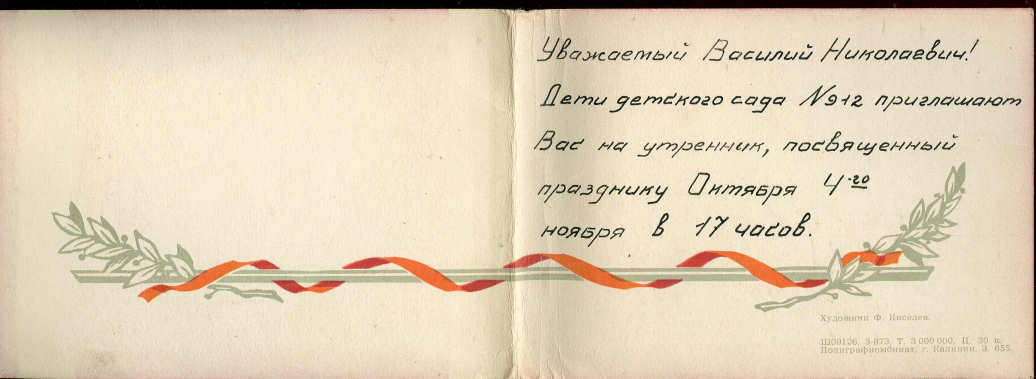 Уважаемый Василий Николаевич!
Дети детского сада №912 приглашают
Вас на утренник, посвященный
празднику Октября 4-го
ноября в 17 часов.
Художник Ф. Киселев.
Ш09126, 3-873, Т. 3 000 000, Ц. 30 к.
Полиграфкомбинат, г. Калинин. З. 655.